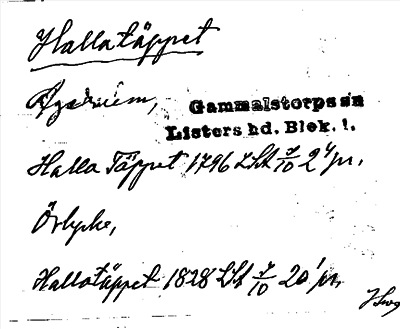 Hallatäppet
Gammalstorps sn
Listers hd. Blek. l.
Halla Täppet 1796 LSA 7/10 2 4/pr.
Örlycke,
Hallatäppet 1828 LSA 7/10 20 1/pr.